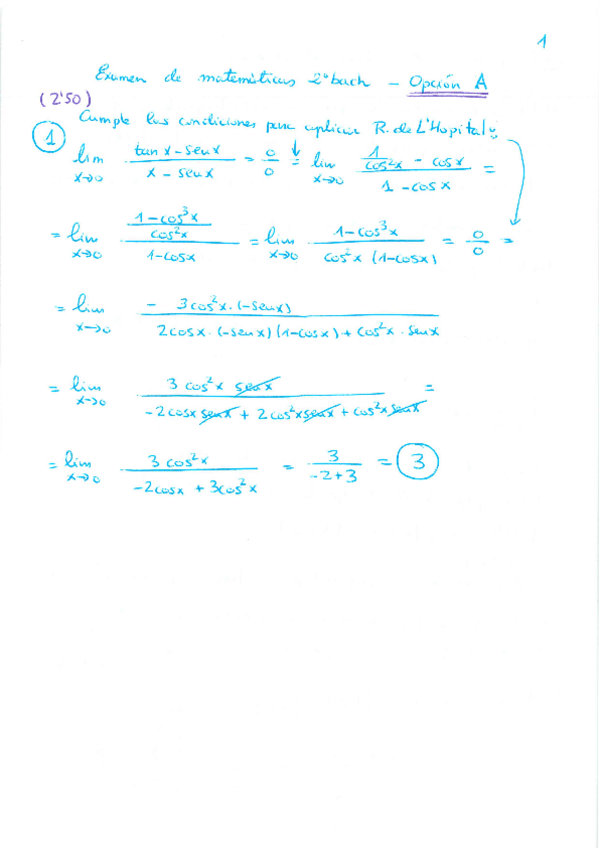 1
Examen de matemáticas 2º bach - Opción A
(2'50)
Cumple las condiciones para aplicar R. de L'Hopital
① lim x→0 (tan x - sen x)/(x - sen x) = 0/0 = lim x→0 (1/cos²x - cos x)/(1 - cos x) =
= lim x→0 ((1-cos³x)/cos²x)/(1-cosx) = lim x→0 (1-cos³x)/(cos²x (1-cosx)) = 0/0 =
= lim x→0 (- 3cos²x·(-senx))/(2cosx·(-senx)(1-cosx)+cos²x·senx)
= lim x→0 (3 cos²x senx)/(-2cosx senx + 2cos²x senx + cos²x senx) =
= lim x→0 (3 cos²x)/(-2cosx + 3cos²x) = 3/(-2+3) = 3